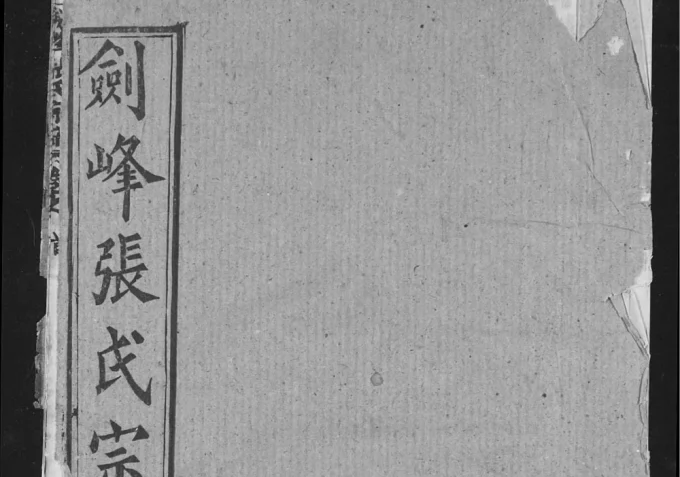 劍峰張氏宗